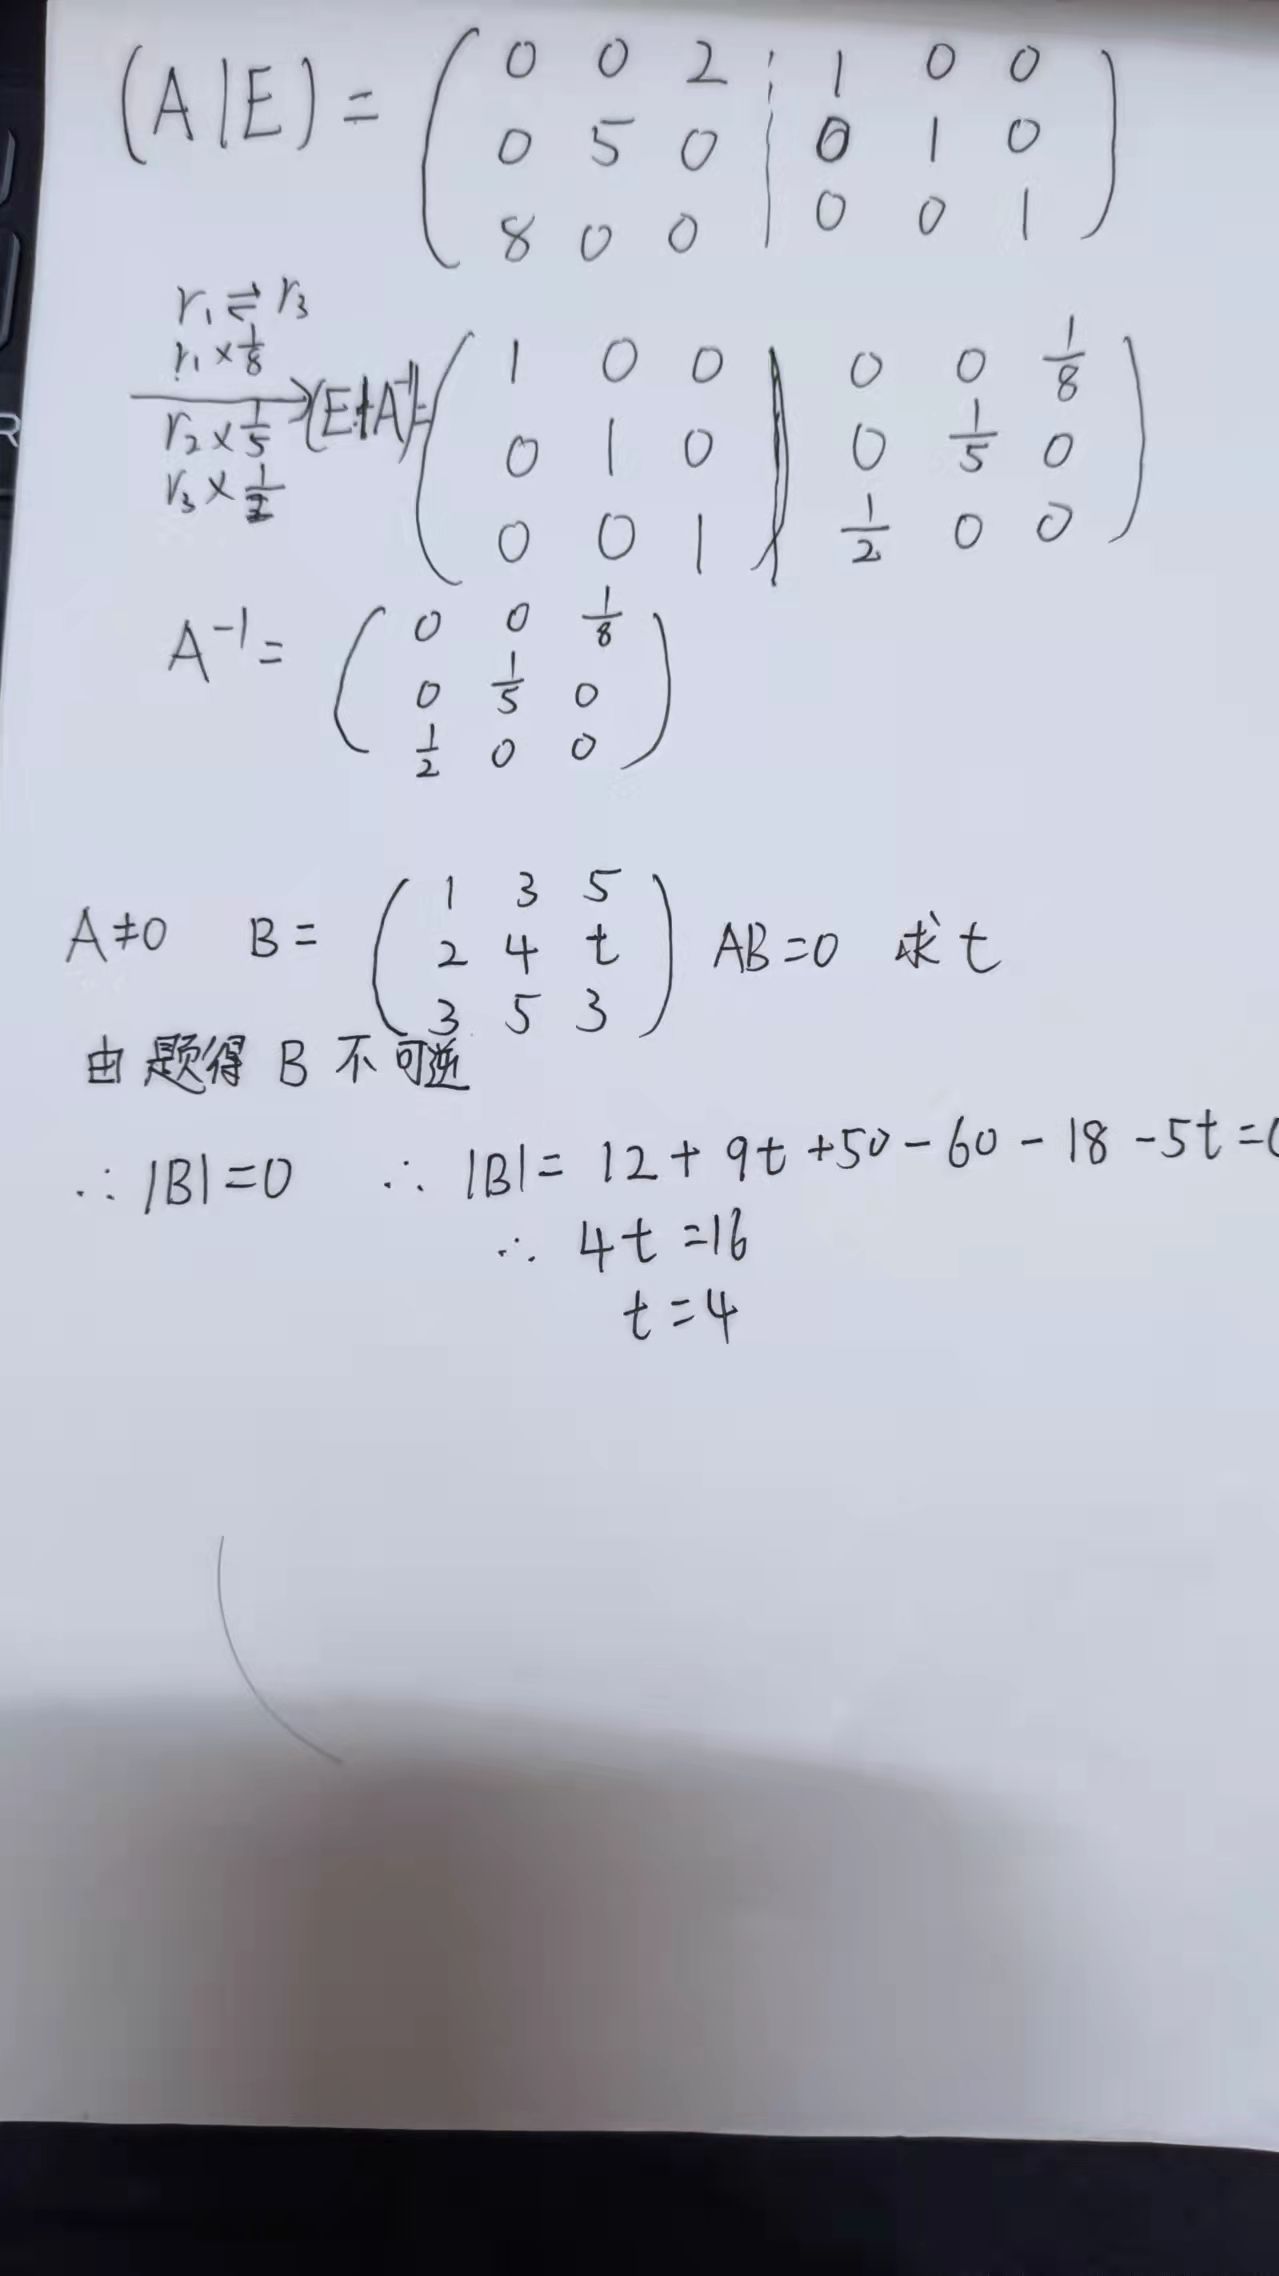 (A|E) = ( 0 0 2 | 1 0 0
0 5 0 | 0 1 0
8 0 0 | 0 0 1 )
r₁ ⇌ r₃
r₁ × 1/8
r₂ × 1/5
r₃ × 1/2
(E|A⁻¹) = ( 1 0 0 | 0 0 1/8
0 1 0 | 0 1/5 0
0 0 1 | 1/2 0 0 )
A⁻¹ = ( 0 0 1/8
0 1/5 0
1/2 0 0 )
A≠0 B = ( 1 3 5
2 4 t
3 5 3 ) AB=0 求t
由题得 B 不可逆
∴ |B|=0 ∴ |B| = 12 + 9t + 50 - 60 - 18 - 5t = 0
∴ 4t = 16
t = 4